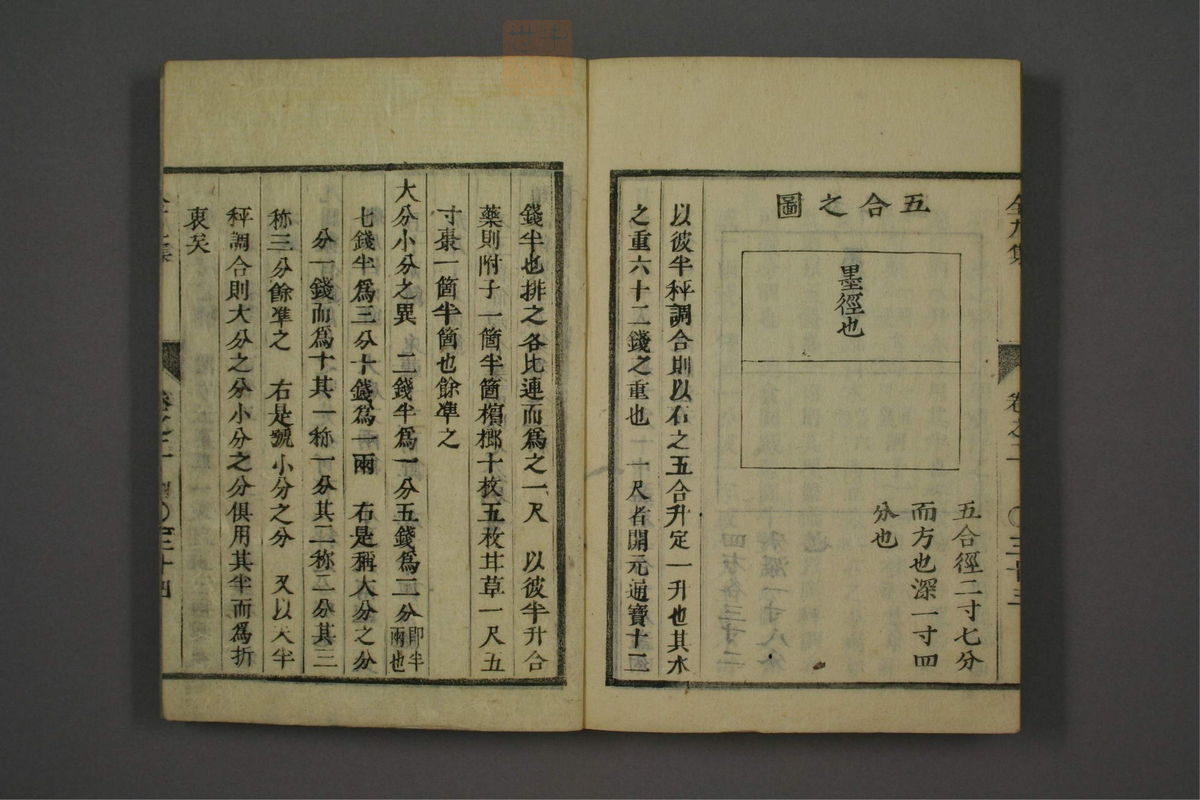 五合之圖
墨徑也
五合徑二寸七分
而方也深一寸四
分也
以彼半秤調合則以石之五合升定一升也其水
之重六十二錢之重也　一尺者開元通寶十二
錢半也排之各比連而爲之一尺　以彼半升合
藥則附子一箇半箇檳榔十枚五枚甘草一尺五
寸棗一箇半箇也餘準之
大分小分之異　二錢半爲一分五錢爲二分即半兩也
七錢半爲三分十錢爲一兩　右是稱大分之分
分一錢而爲十其一称一分其二称二分其三
称三分餘準之　右是號小分之分　又以大半
秤調合則大分之分小分之分俱用其半而爲折
衷矣